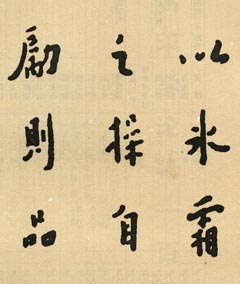 以氷霜
之操自
勵則品